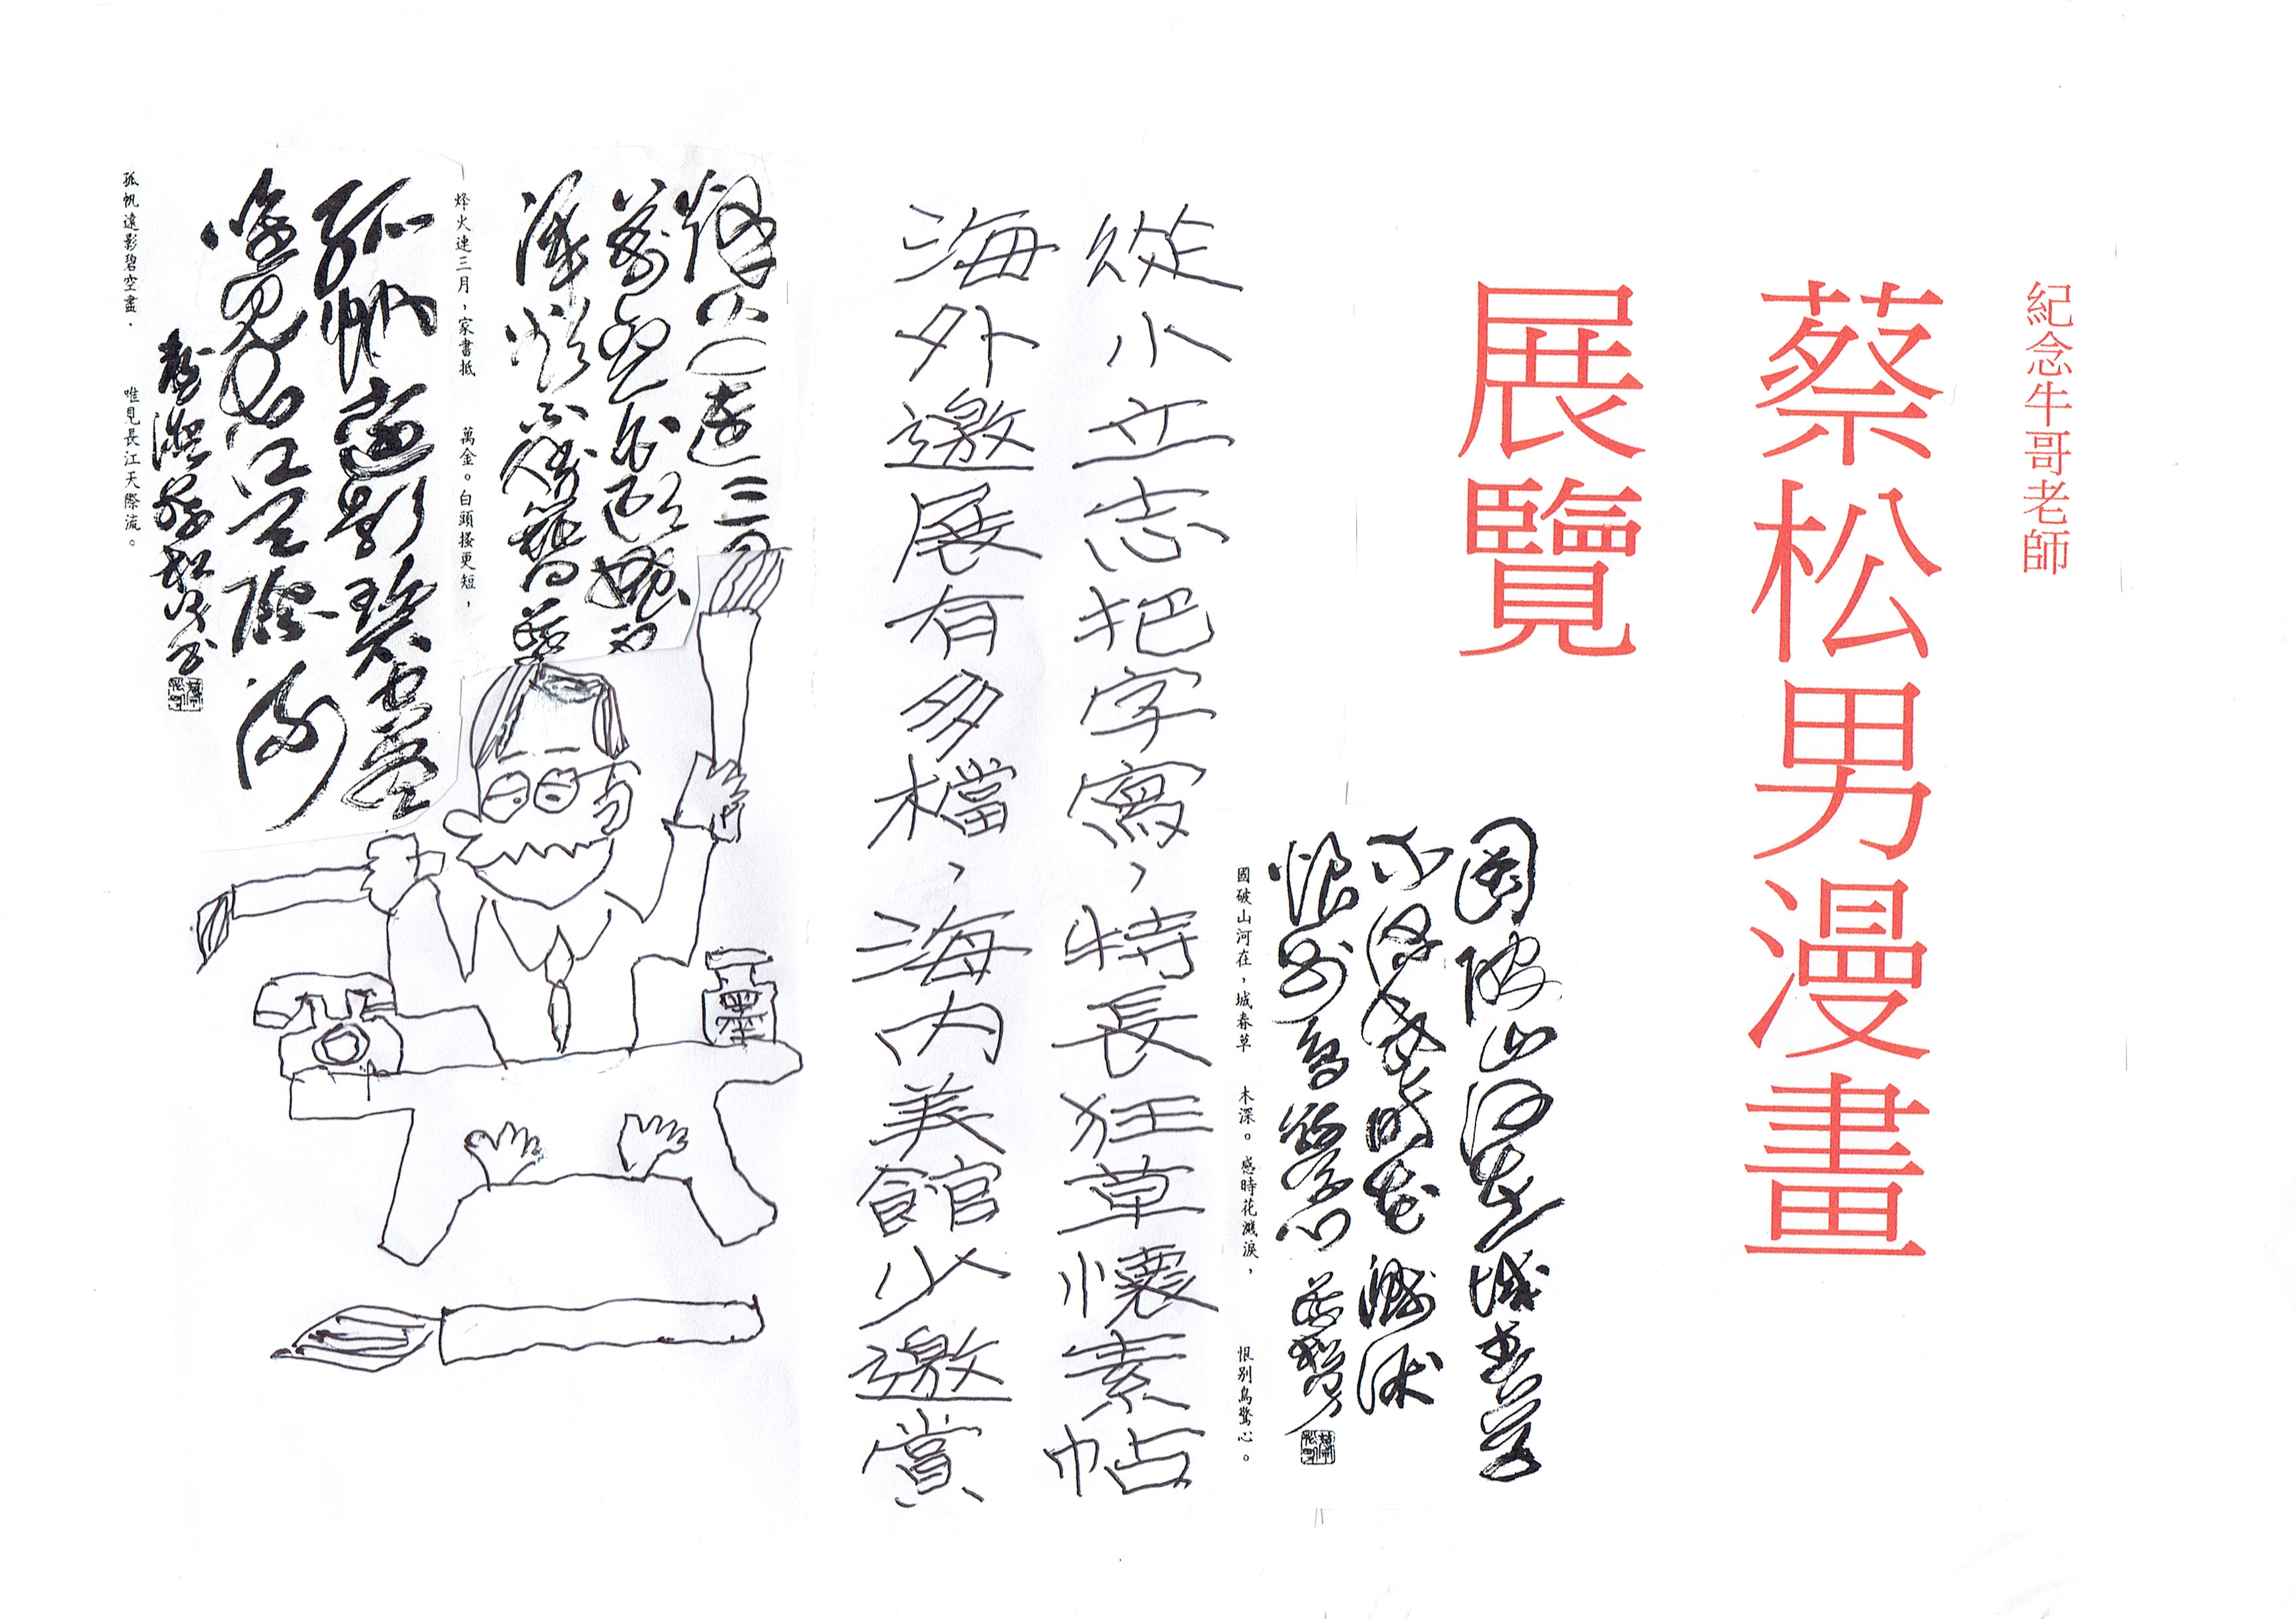 紀念牛哥老師
蔡松男漫畫
展覽
國破山河在城春草
木深感時花濺淚
恨別鳥驚心 蔡松男
國破山河在，城春草 木深。感時花濺淚， 恨別鳥驚心。
從小立志把字寫，特長狂草懷素帖
海外邀展有多檔，海內美館少邀賞
烽火連三月
萬金白頭搔更短
渾欲不勝簪 蔡
烽火連三月，家書抵 萬金。白頭搔更短，
孤帆遠影碧空盡
唯見長江天際流
孤帆遠影碧空盡， 唯見長江天際流。
墨